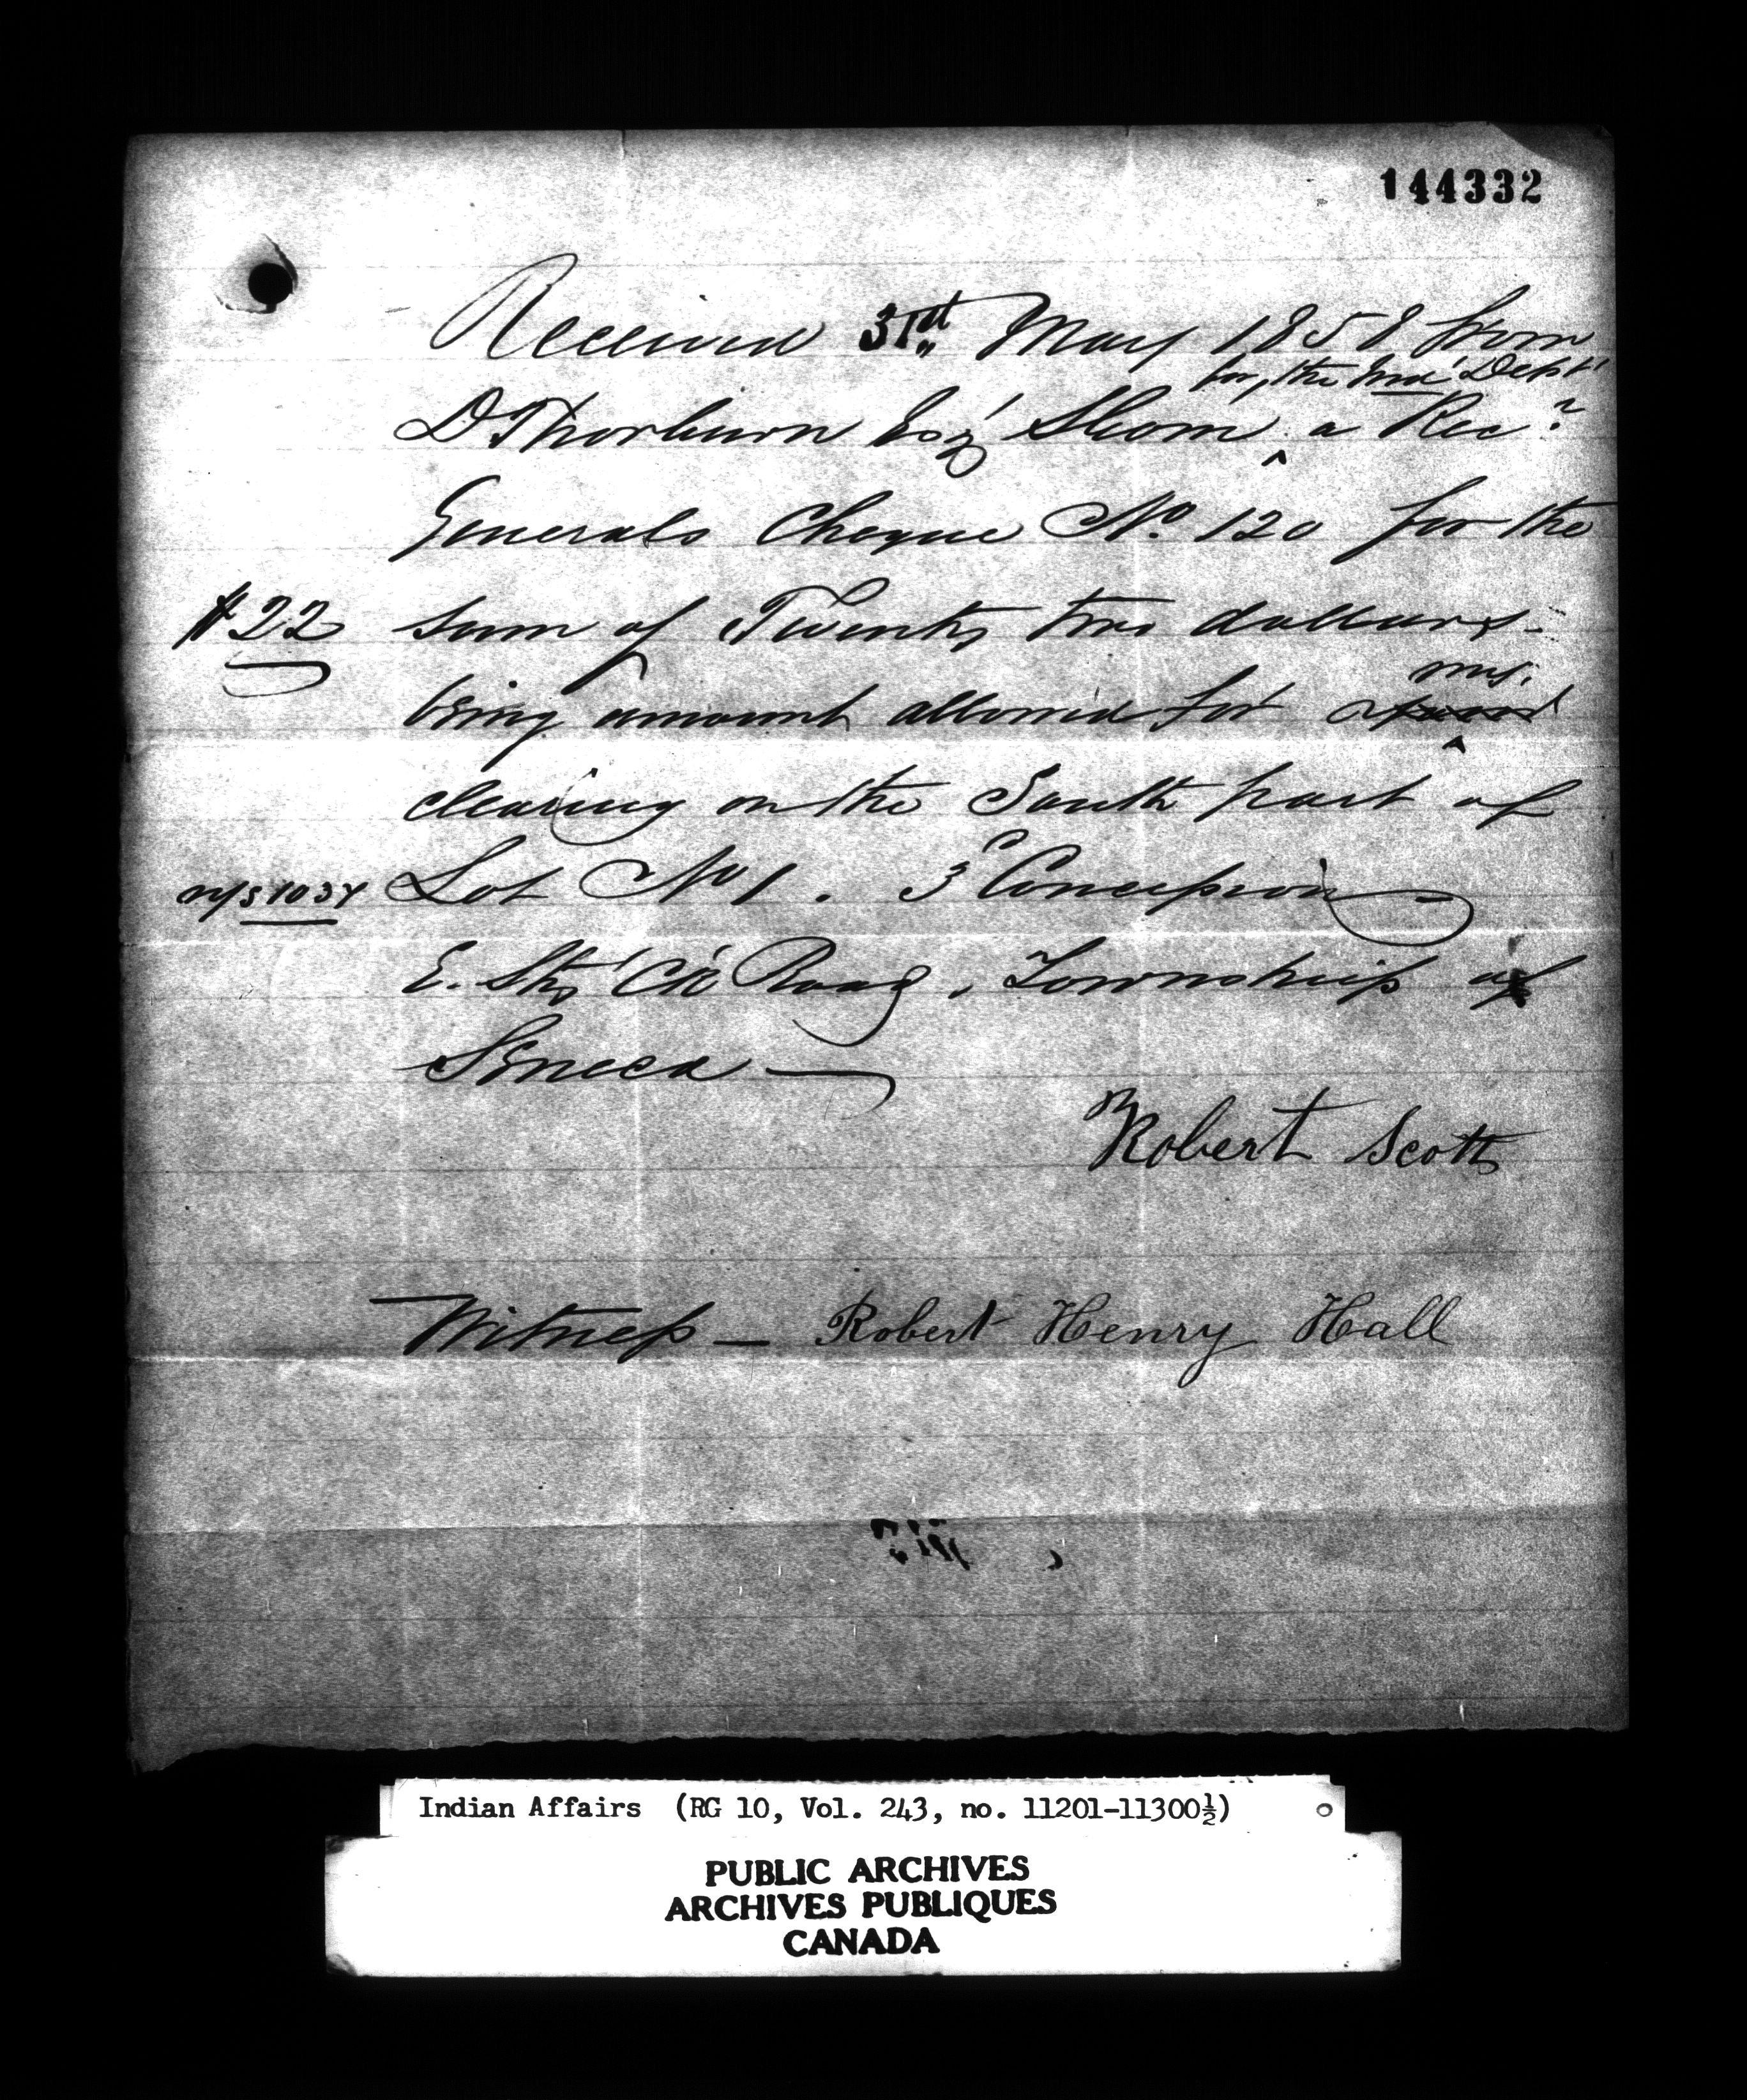 144332
Received 31st May 1858 from
for the Ind Dept
D Thorburn Esq' a Rec'
Generals Cheque No. 120 for the
$22 sum of Twenty two dollars
my
being amount allowed for
clearing on the South part of
Lot No 1. 3d Concession
E. Stg Ck Road, Township of
Seneca —
Robert Scott
Witness — Robert Henry Hall
Indian Affairs (RG 10, Vol. 243, no. 11201-11300½)
PUBLIC ARCHIVES
ARCHIVES PUBLIQUES
CANADA